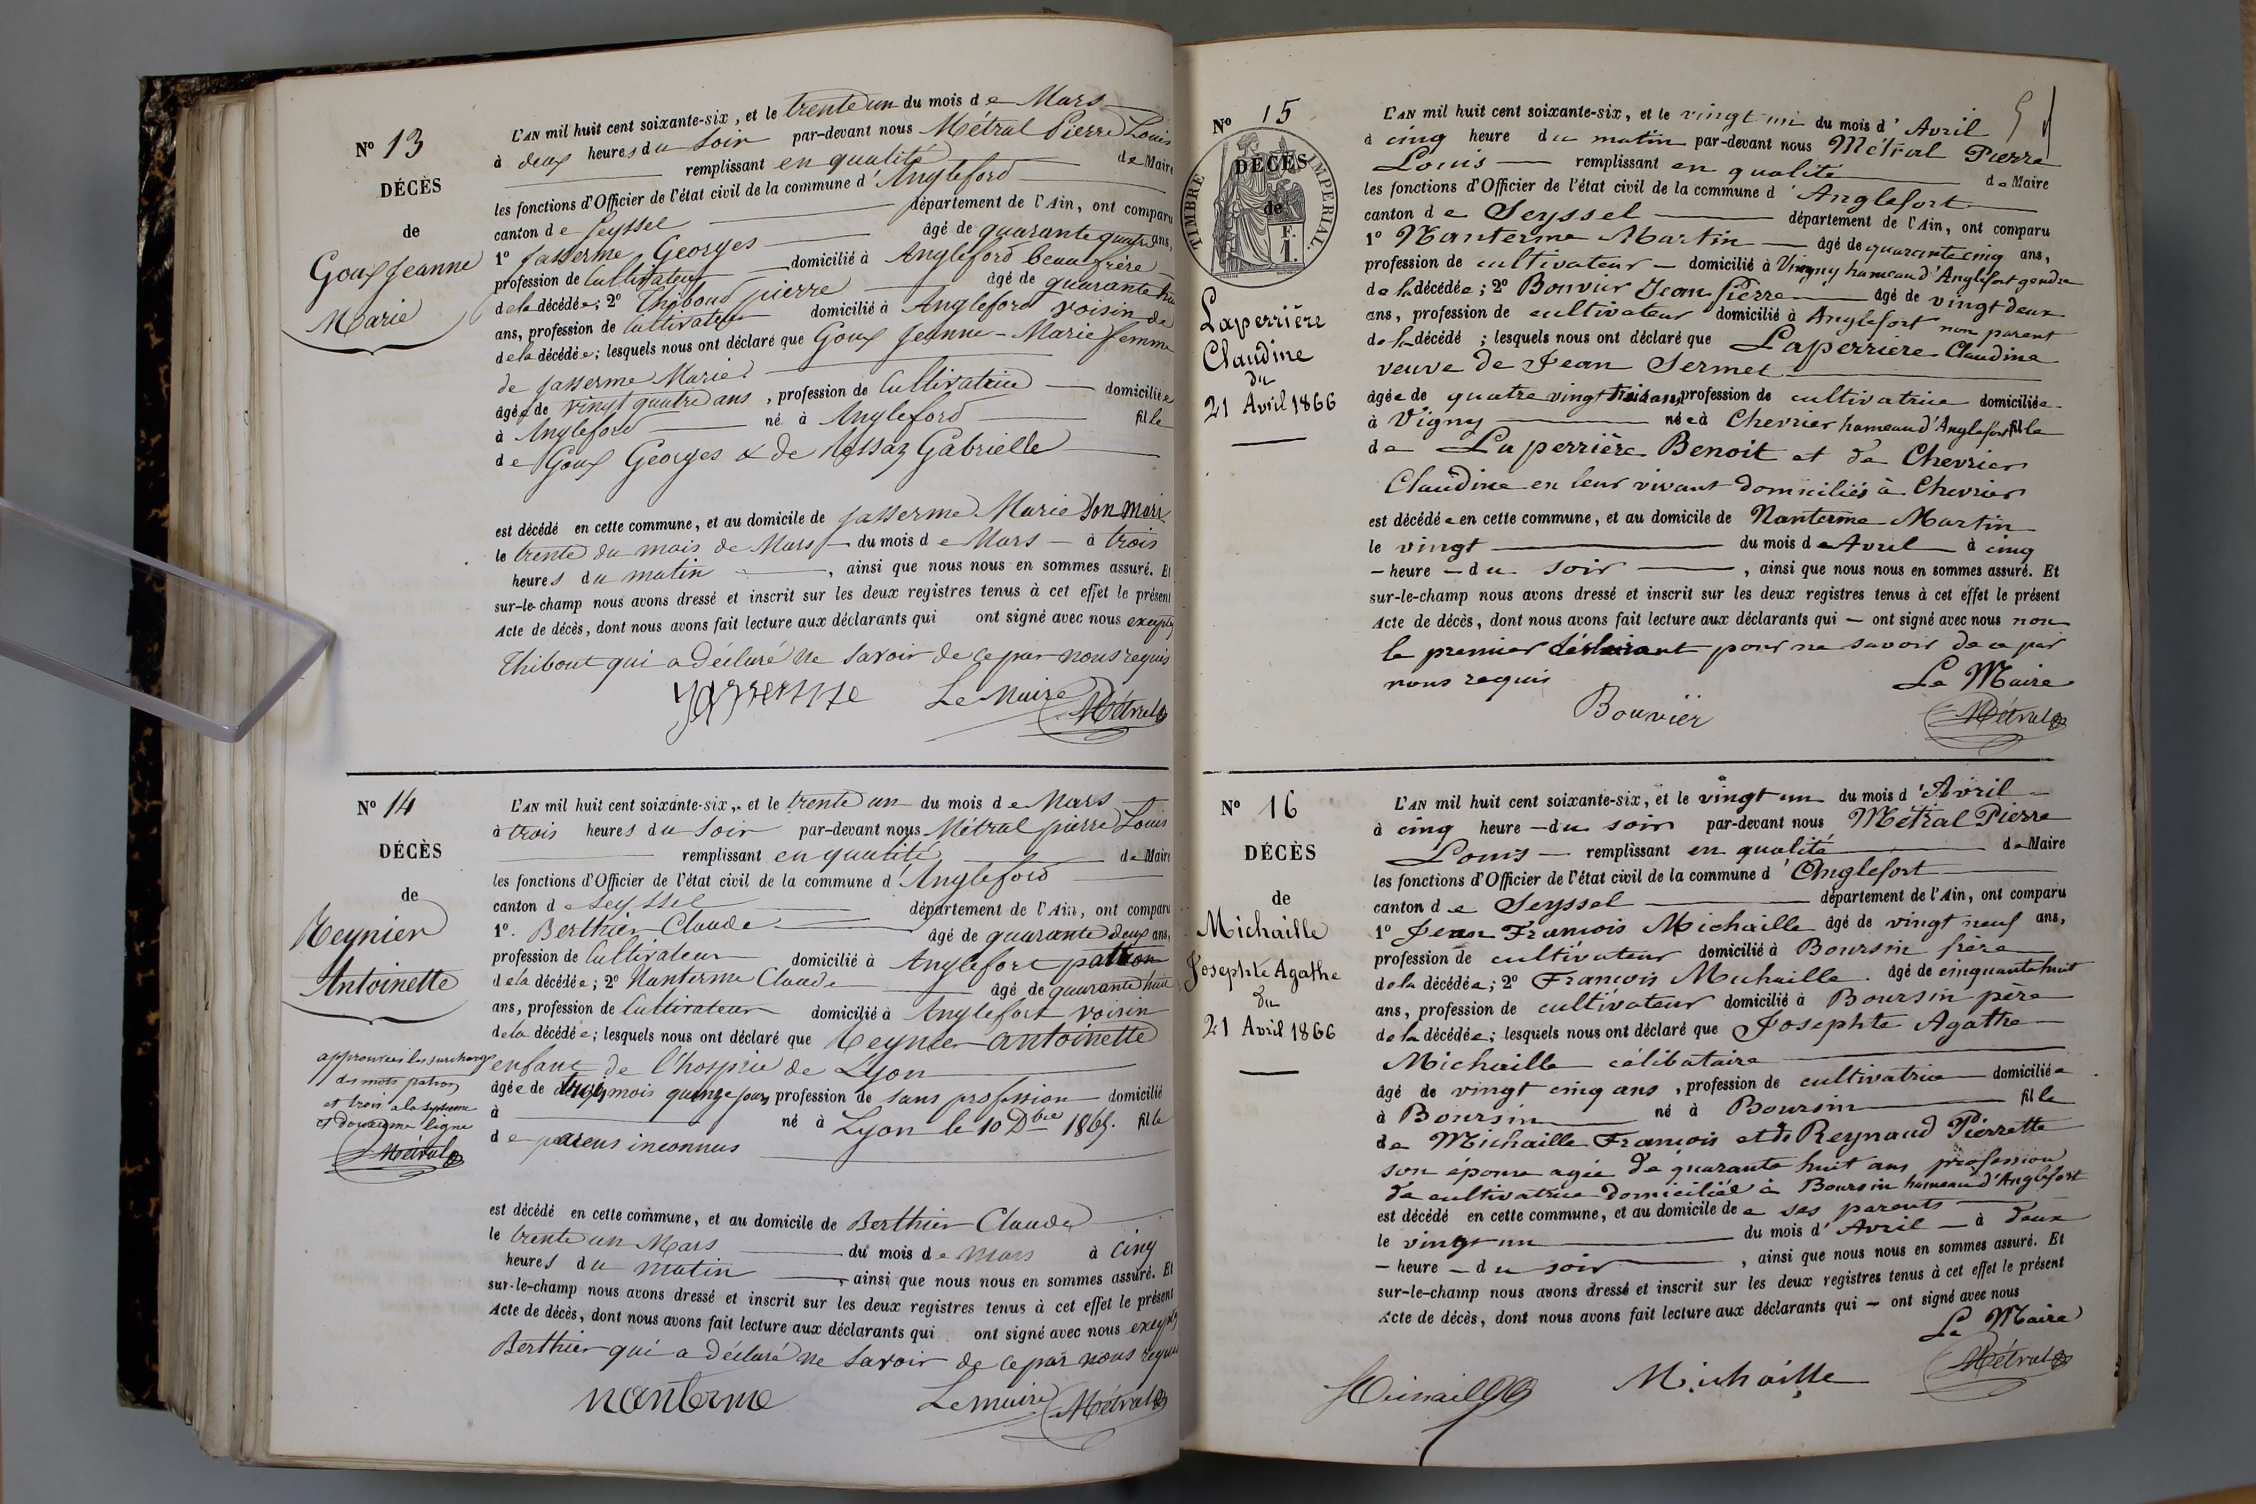 N° 13
DÉCÈS
de
Goux Jeanne
Marie
L'AN mil huit cent soixante-six, et le trente un du mois de Mars
à deux heures du Soir par-devant nous Métral Pierre Louis
remplissant en qualité de Maire
les fonctions d'Officier de l'état civil de la commune d'Angleford
canton de Seyssel département de l'Ain, ont comparu
1° Jasserme Georges âgé de quarante quatre ans,
profession de Cultivateur domicilié à Angleford beau frère
de la décédée; 2° Thiboud pierre âgé de quarante
ans, profession de Cultivateur domicilié à Angleford voisin de
de la décédée; lesquels nous ont déclaré que Goux Jeanne-Marie femme
de Jasserme Marie
âgée de vingt quatre ans, profession de Cultivatrice domiciliée
à Angleford né à Angleford fille
de Goux Georges & de Gabrielle
est décédé en cette commune, et au domicile de Jasserme Marie Son mari
le trente du mois de Mars du mois de Mars à trois
heures du matin, ainsi que nous nous en sommes assuré. Et
sur-le-champ nous avons dressé et inscrit sur les deux registres tenus à cet effet le présent
Acte de décès, dont nous avons fait lecture aux déclarants qui ont signé avec nous excepté
Thibout qui a déclaré ne Savoir de ce par nous requis
Jasserme Le Maire Métral
N° 14
DÉCÈS
de
Reynier
Antoinette
approuvées les surcharges
des mots patron
et trois a la septieme
et douzieme ligne
Métral
L'AN mil huit cent soixante-six, et le trente un du mois de Mars
à trois heures du Soir par-devant nous Métral pierre Louis
remplissant en qualité de Maire
les fonctions d'Officier de l'état civil de la commune d'Angleford
canton de Seyssel département de l'Ain, ont comparu
1° Berthier Claude âgé de quarante deux ans,
profession de Cultivateur domicilié à Anglefort patron
de la décédée; 2° Nanterme Claude âgé de quarante huit
ans, profession de Cultivateur domicilié à Anglefort voisin
de la décédée; lesquels nous ont déclaré que Reynier antoinette
enfant de l'hospice de Lyon
âgée de trois mois quinze jours profession de sans profession domicilié
à né à Lyon le 10 Dbre 1865. fille
de parens inconnus
est décédé en cette commune, et au domicile de Berthier Claude
le trente un Mars du mois de mars à cinq
heures du matin, ainsi que nous nous en sommes assuré. Et
sur-le-champ nous avons dressé et inscrit sur les deux registres tenus à cet effet le présent
Acte de décès, dont nous avons fait lecture aux déclarants qui ont signé avec nous excepté
Berthier qui a déclaré ne Savoir de ce par nous requis
nanterme Le maire Métral
N° 15
TIMBRE IMPERIAL
DÉCÈS
de
F.
1.
Laperrière
Claudine
du
21 Avril 1866
L'AN mil huit cent soixante-six, et le vingt un du mois d'Avril
à cinq heure du matin par-devant nous Métral Pierre
Louis remplissant en qualité de Maire
les fonctions d'Officier de l'état civil de la commune d'Anglefort
canton de Seyssel département de l'Ain, ont comparu
1° Nanterme Martin âgé de quarante cinq ans,
profession de cultivateur domicilié à Vigny hameau d'Anglefort gendre
de la décédée; 2° Bonvier Jean Pierre âgé de vingt deux
ans, profession de cultivateur domicilié à Anglefort non parent
de la décédé; lesquels nous ont déclaré que Laperrière Claudine
veuve de Jean Sermet
âgée de quatre vingt trois ans, profession de cultivatrice domiciliée
à Vigny née à Chevrier hameau d'Anglefort fille
de Laperrière Benoit et de Chevrier
Claudine en leur vivant domiciliés à Chevrier
est décédée en cette commune, et au domicile de Nanterme Martin
le vingt du mois de Avril à cinq
heure du soir, ainsi que nous nous en sommes assuré. Et
sur-le-champ nous avons dressé et inscrit sur les deux registres tenus à cet effet le présent
Acte de décès, dont nous avons fait lecture aux déclarants qui ont signé avec nous non
le premier déclarant pour ne savoir de ce par
nous requis Le Maire
Bouvier Métral
N° 16
DÉCÈS
de
Michaille
Josephte Agathe
du
21 Avril 1866
L'AN mil huit cent soixante-six, et le vingt un du mois d'Avril
à cinq heure du soir par-devant nous Métral Pierre
Louis remplissant en qualité de Maire
les fonctions d'Officier de l'état civil de la commune d'Anglefort
canton de Seyssel département de l'Ain, ont comparu
1° Jean François Michaille âgé de vingt neuf ans,
profession de cultivateur domicilié à Boursin frère
de la décédée; 2° François Michaille âgé de cinquante huit
ans, profession de cultivateur domicilié à Boursin père
de la décédée; lesquels nous ont déclaré que Josephte Agathe
Michaille célibataire
âgé de vingt cinq ans, profession de cultivatrice domiciliée
à Boursin né à Boursin fille
de Michaille François et de Reynaud Pierrette
son épouse agée de quarante huit ans profession
de cultivatrice domiciliée à Boursin hameau d'Anglefort
est décédé en cette commune, et au domicile de ses parents
le vingt un du mois d'Avril à deux
heure du soir, ainsi que nous nous en sommes assuré. Et
sur-le-champ nous avons dressé et inscrit sur les deux registres tenus à cet effet le présent
Acte de décès, dont nous avons fait lecture aux déclarants qui ont signé avec nous
Le Maire
Michaille Métral